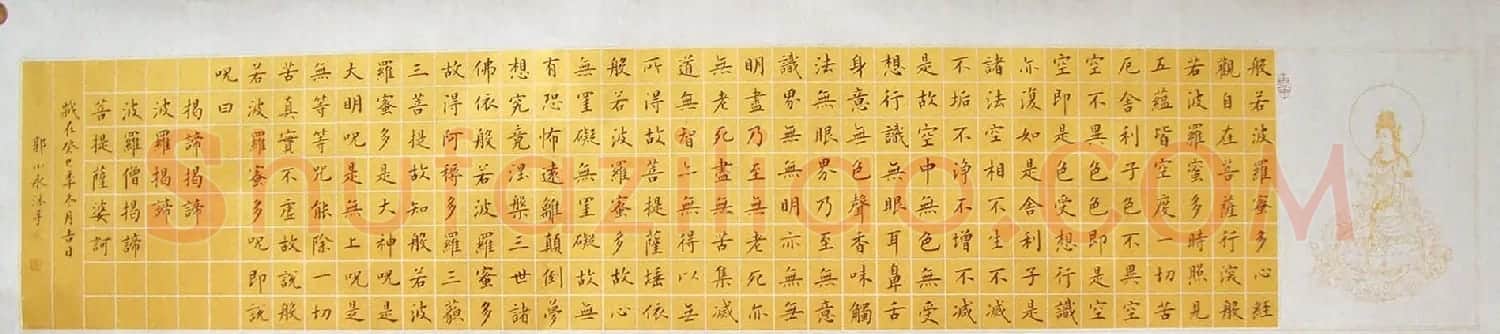 般若波羅蜜多心經
觀自在菩薩行深般
若波羅蜜多時照見
五蘊皆空度一切苦
厄舍利子色不異空
空不異色色即是空
空即是色受想行識
亦復如是舍利子是
諸法空相不生不滅
不垢不淨不增不減
是故空中無色無受
想行識無眼耳鼻舌
身意無色聲香味觸
法無眼界乃至無意
識界無無明亦無無
明盡乃至無老死亦
無老死盡無苦集滅
道無智亦無得以無
所得故菩提薩埵依
般若波羅蜜多故心
無罣礙無罣礙故無
有恐怖遠離顛倒夢
想究竟涅槃三世諸
佛依般若波羅蜜多
故得阿耨多羅三藐
三菩提故知般若波
羅蜜多是大神呪是
大明呪是無上呪是
無等等呪能除一切
苦真實不虛故說般
若波羅蜜多呪即說
呪曰
揭諦揭諦
波羅揭諦
波羅僧揭諦
菩提薩婆訶
歲在癸巳年六月吉日
郭小永沐手